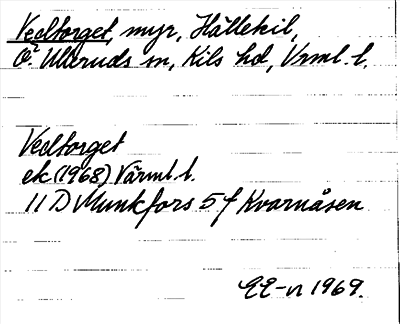 Vedtorget, myr, Hällekil,
Ö. Ulleruds sn, Kils hd, Vrml. l.
Vedtorget
ek (1968) Värml. l.
11 D Munkfors 5 f Kvarnåsen
EE-n 1969.